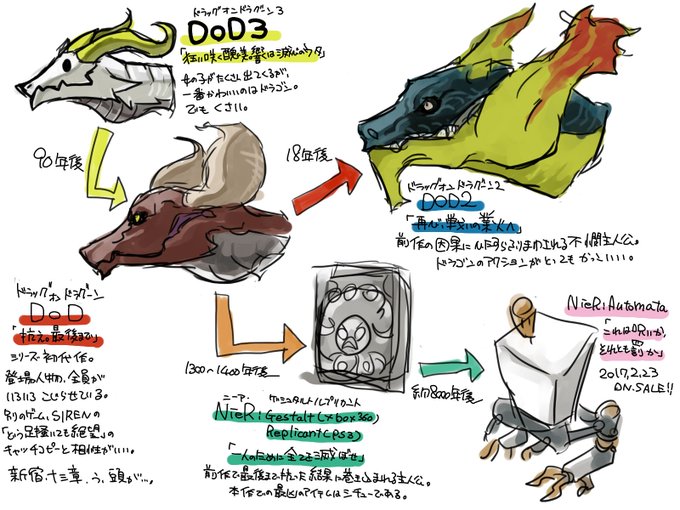 ドラッグオンドラグーン3
DoD3
「狂い咲く醜美。響くは滅びのウタ」
女の子がたくさん出てくるが、
一番かわいいのはドラゴン。
でもくさい。
90年後
18年後
ドラッグオンドラグーン2
DOD2
「再び、戦いの業火へ」
前作の因果にひたすらふりまわされる不憫主人公。
ドラゴンのアクションがとってもかっこいい。
ドラッグオンドラグーン
DoD
「抗え。最後まで」
シリーズ初代作。
登場人物、全員が
いろいろこじらせている。
別のゲーム、SIRENの
「どう足掻いても絶望」の
キャッチコピーと相性がいい。
新宿十三章、う、頭が…。
1300〜1400年後
ニーア・ゲシュタルト/レプリカント
NieR:Gestalt(xbox360)
Replicant(PS3)
「一人のために全てを滅ぼせ」
前作で最後まで抗った結果に巻き込まれる主人公。
本作での最凶のアイテムはシチューである。
約8000年後
NieR:Automata
「これは呪いか。
それとも罰か」
2017.2.23
ON.SALE!!